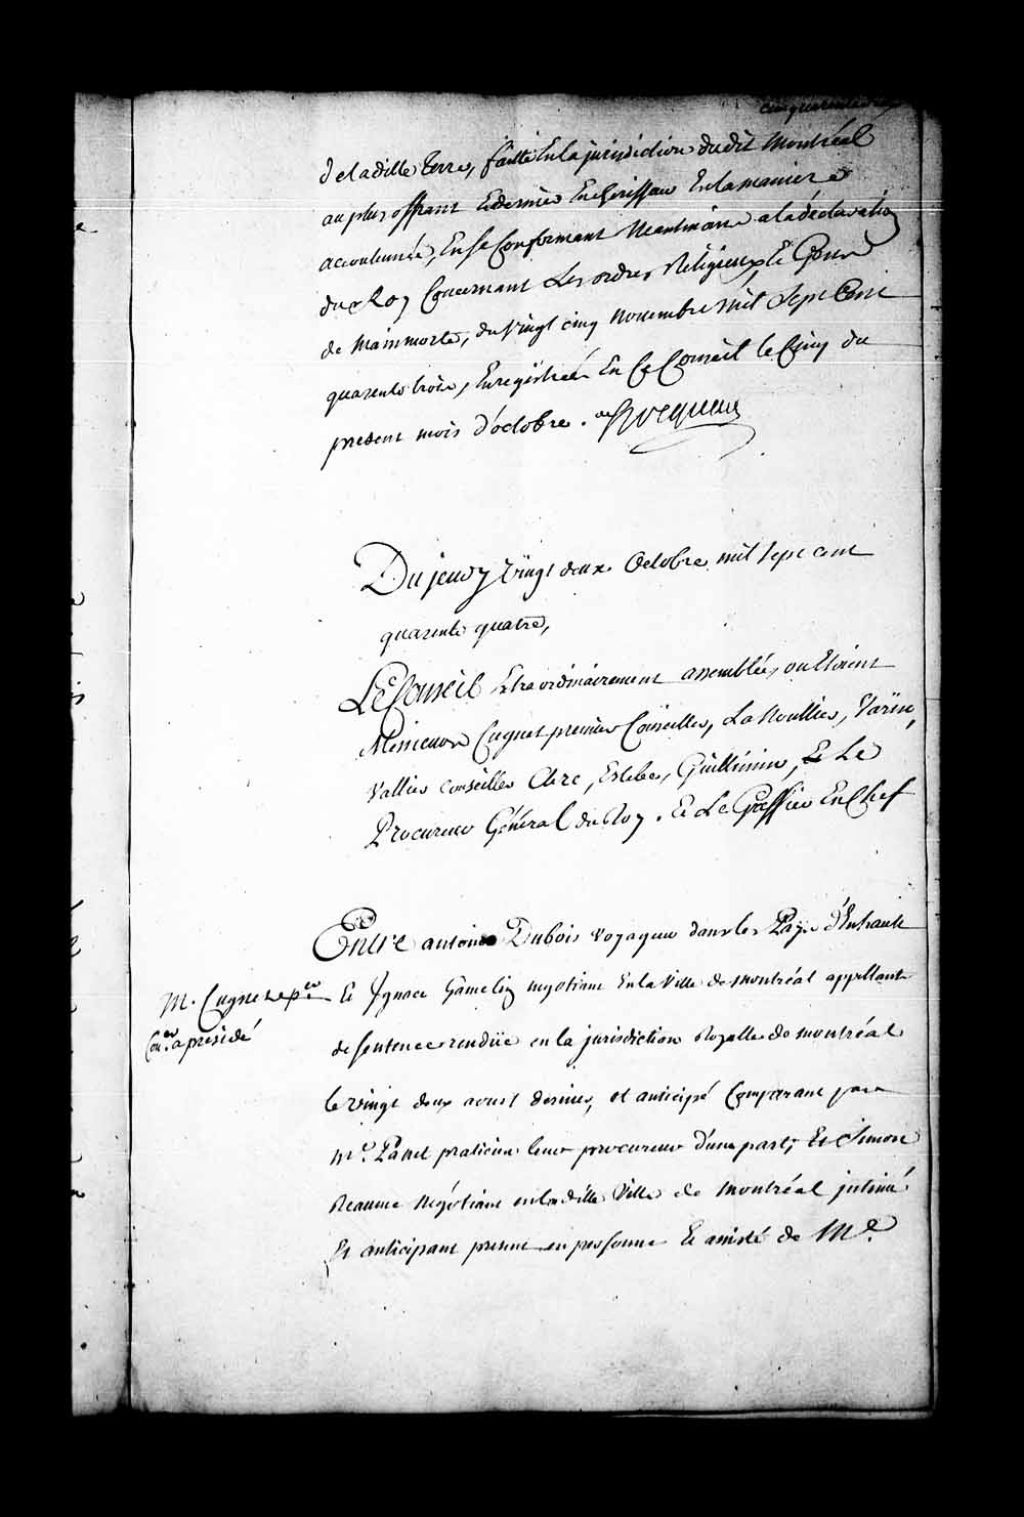 de ladille Terre, faitte En la jurisdiction dudit Montréal
au plus offrant Et dernier Encherisseur En la maniere
accoutumée, En se Conformant Neantmoins a la déclaration
du Roy Concernant Les ordres Religieux Et Gens
de Mainmorte, du vingt cinq Novembre Mil Sept Cent
quarente trois, Enregistrée En Ce Conseil le Cinq du
present mois d'octobre. hocquart
Du jeudy vingt deux Octobre mil sept cent
quarente quatre,
Le Conseil Extraordinairement assemblée, ou Etoient
Messieurs Cugnet premier Conseiller, La Noullier, Varin,
Vallier conseiller Clerc, Estebe, Guillimin, Et Le
Procureur Général du Roy. Et Le Greffier En Chef
Entre antoine Dubois voyageur dans les Pays d'Enhault
M. Cugnet p.er
Con.er a presidé
Et Ignace Gamelin negotiant En la Ville de Montréal appellant
de sentence rendüe en la jurisdiction Royalle de montréal
le vingt deux aoust dernier, et anticipé Comparant par
M.e Panet praticien leur procureur d'une part; Et Simon
Reaume Négotiant en ladille Ville de Montréal intimé
Et anticipant present en personne Et assisté de M.e